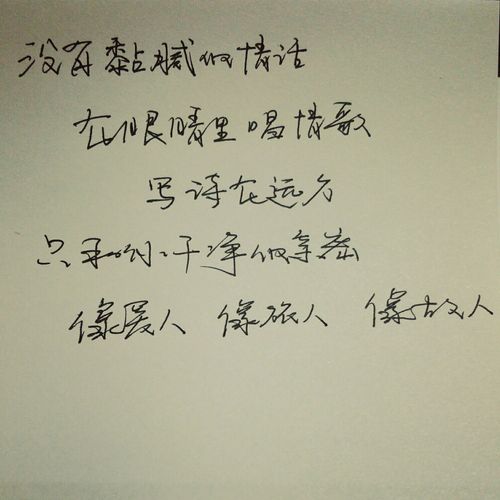 没有黏腻的情话
在眼睛里唱情歌
写诗在远方
只和 干净的
像爱人 像旅人 像故人